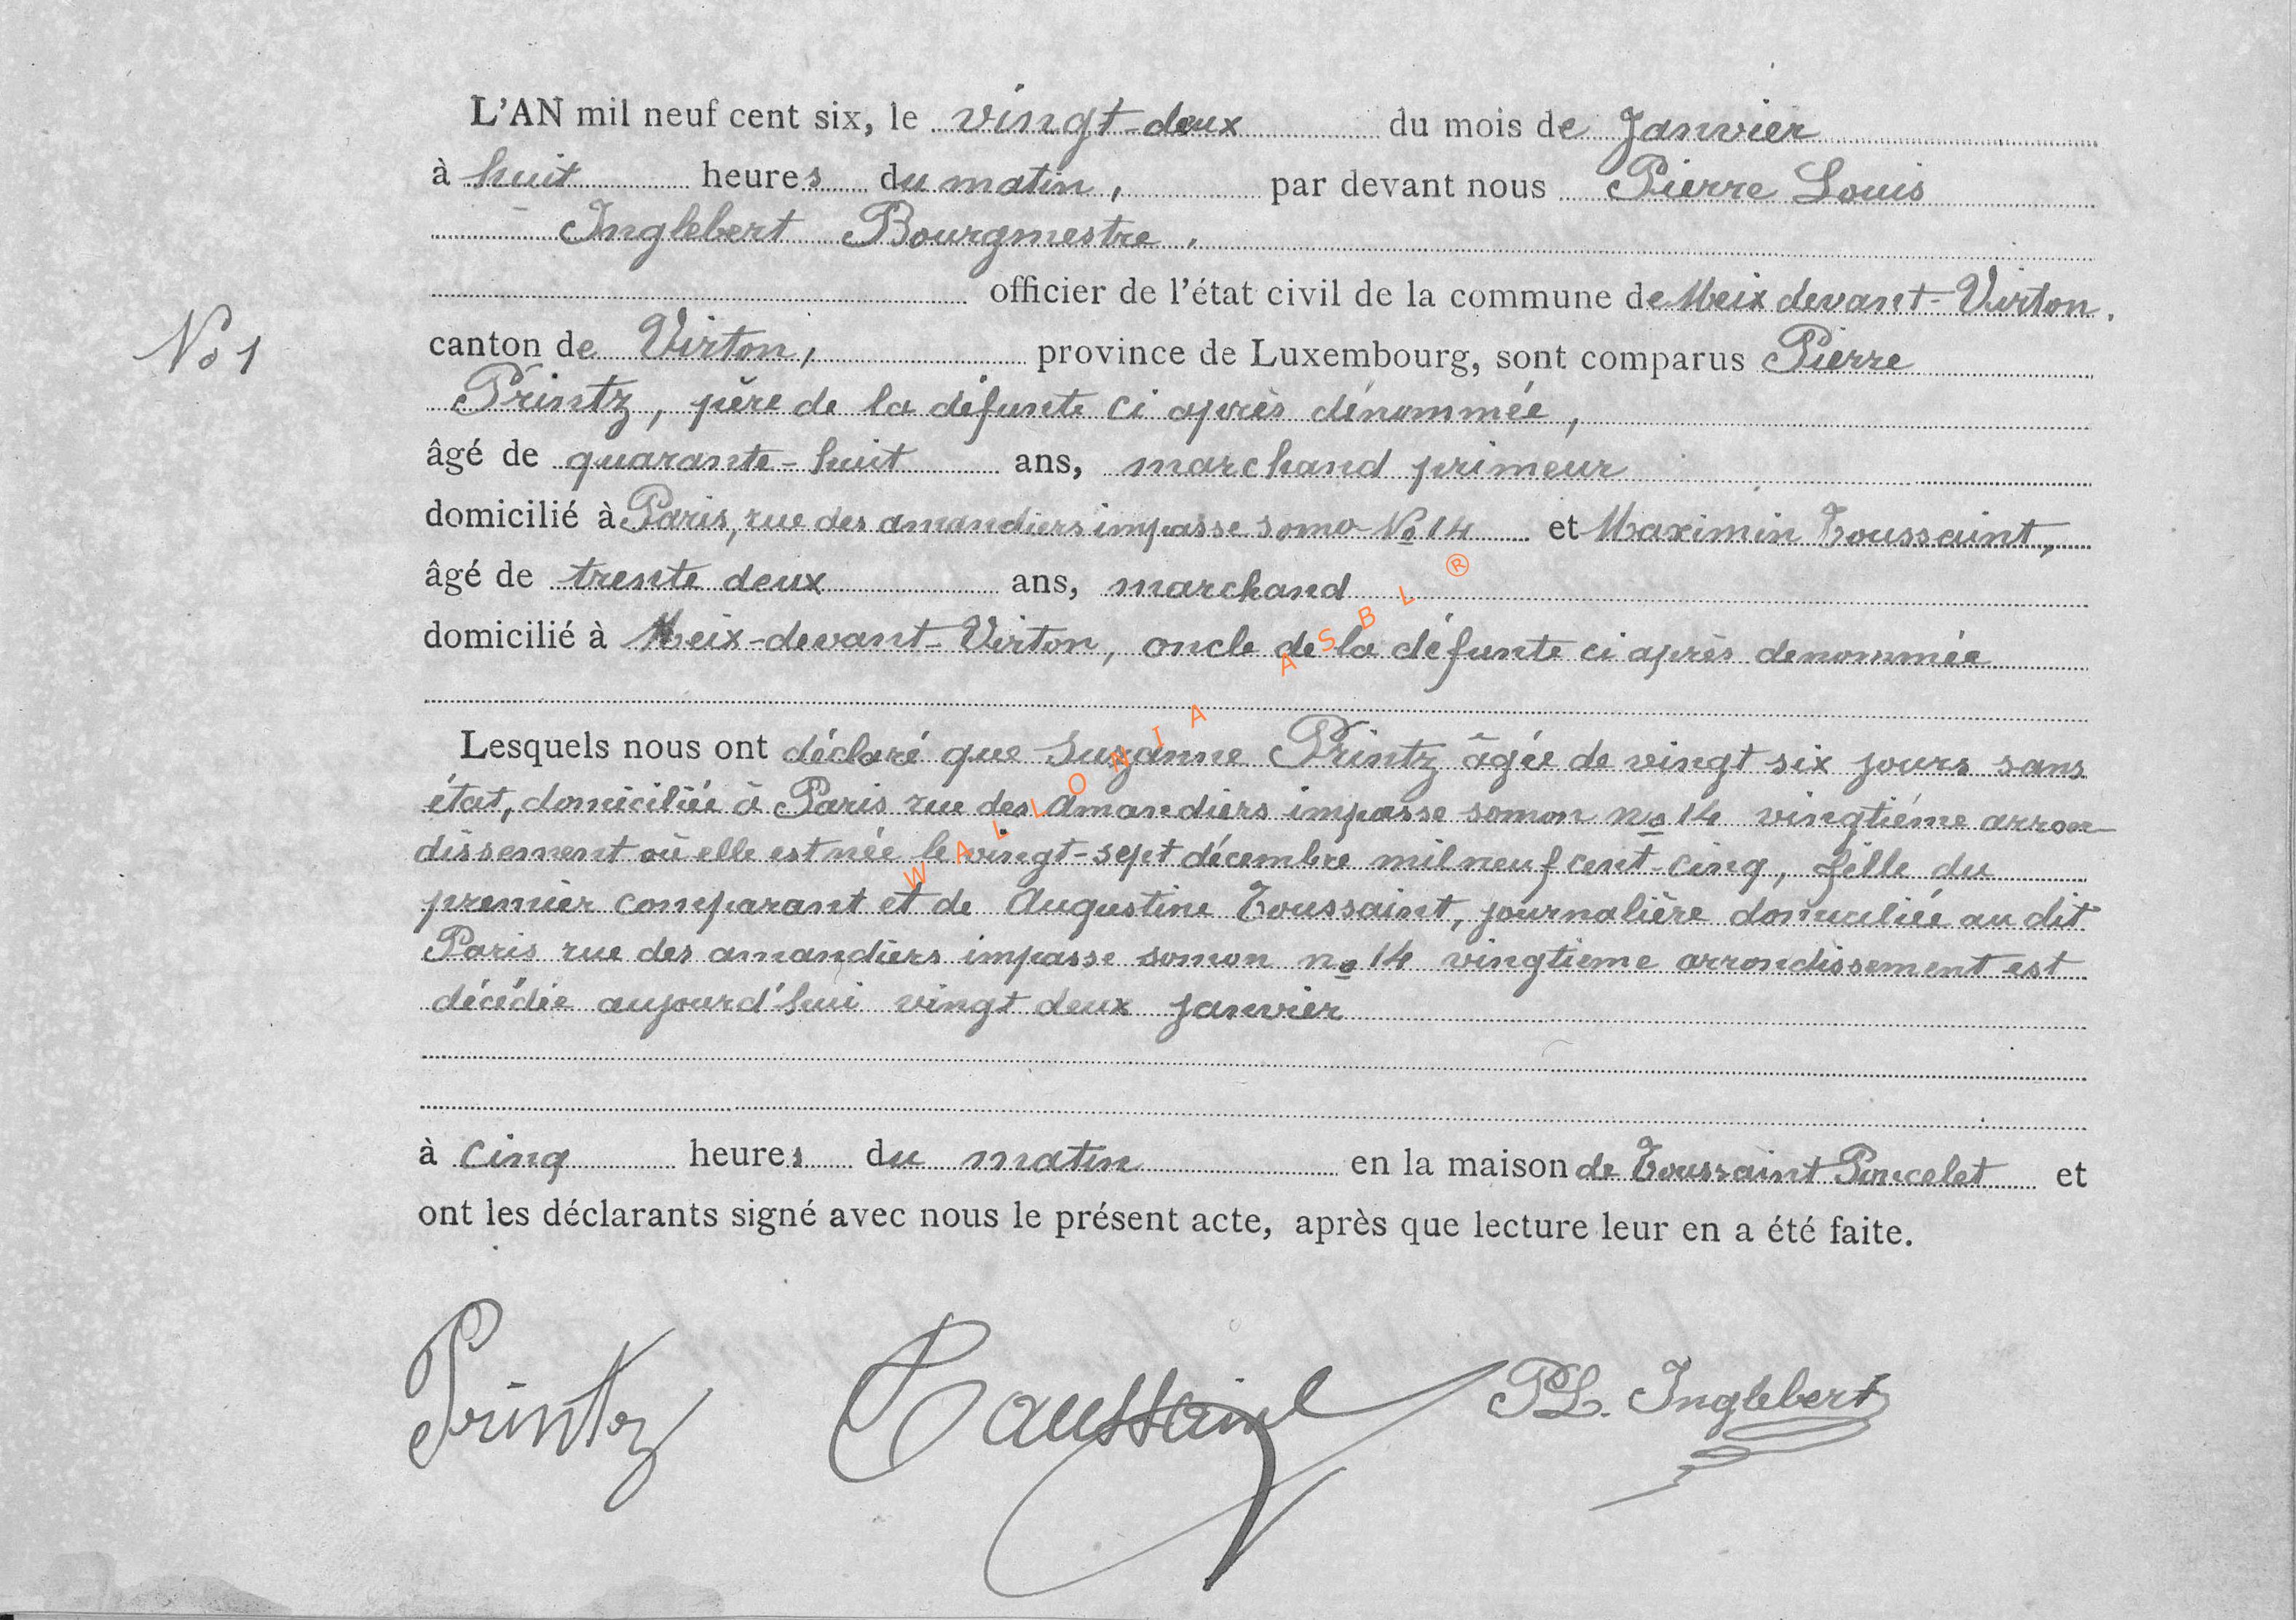 L'AN mil neuf cent six, le vingt-deux du mois de Janvier
à huit heures du matin, par devant nous Pierre Louis
Inglebert Bourgmestre.
officier de l'état civil de la commune de Meix devant-Virton.
No 1
canton de Virton, province de Luxembourg, sont comparus Pierre
Printz, père de la défunte ci après dénommée,
âgé de quarante-huit ans, marchand primeur
domicilié à Paris, rue des amandiers impasse somo No 14 et Maximin Toussaint,
âgé de trente deux ans, marchand
domicilié à Meix-devant-Virton, oncle de la défunte ci après dénommée
Lesquels nous ont déclaré que Suzanne Printz âgée de vingt six jours sans
état, domiciliée à Paris rue des Amandiers impasse somon no 14 vingtième arron-
dissement où elle est née le vingt-sept décembre mil neuf cent-cinq, fille du
premier comparant et de Augustine Toussaint, journalière domiciliée au dit
Paris rue des amandiers impasse somon no 14 vingtieme arrondissement est
décédée aujourd'hui vingt deux janvier
à cinq heures du matin en la maison de Toussaint Poncelet et
ont les déclarants signé avec nous le présent acte, après que lecture leur en a été faite.
Printz Toussaint PL. Inglebert
WALLONIA ASBL ®